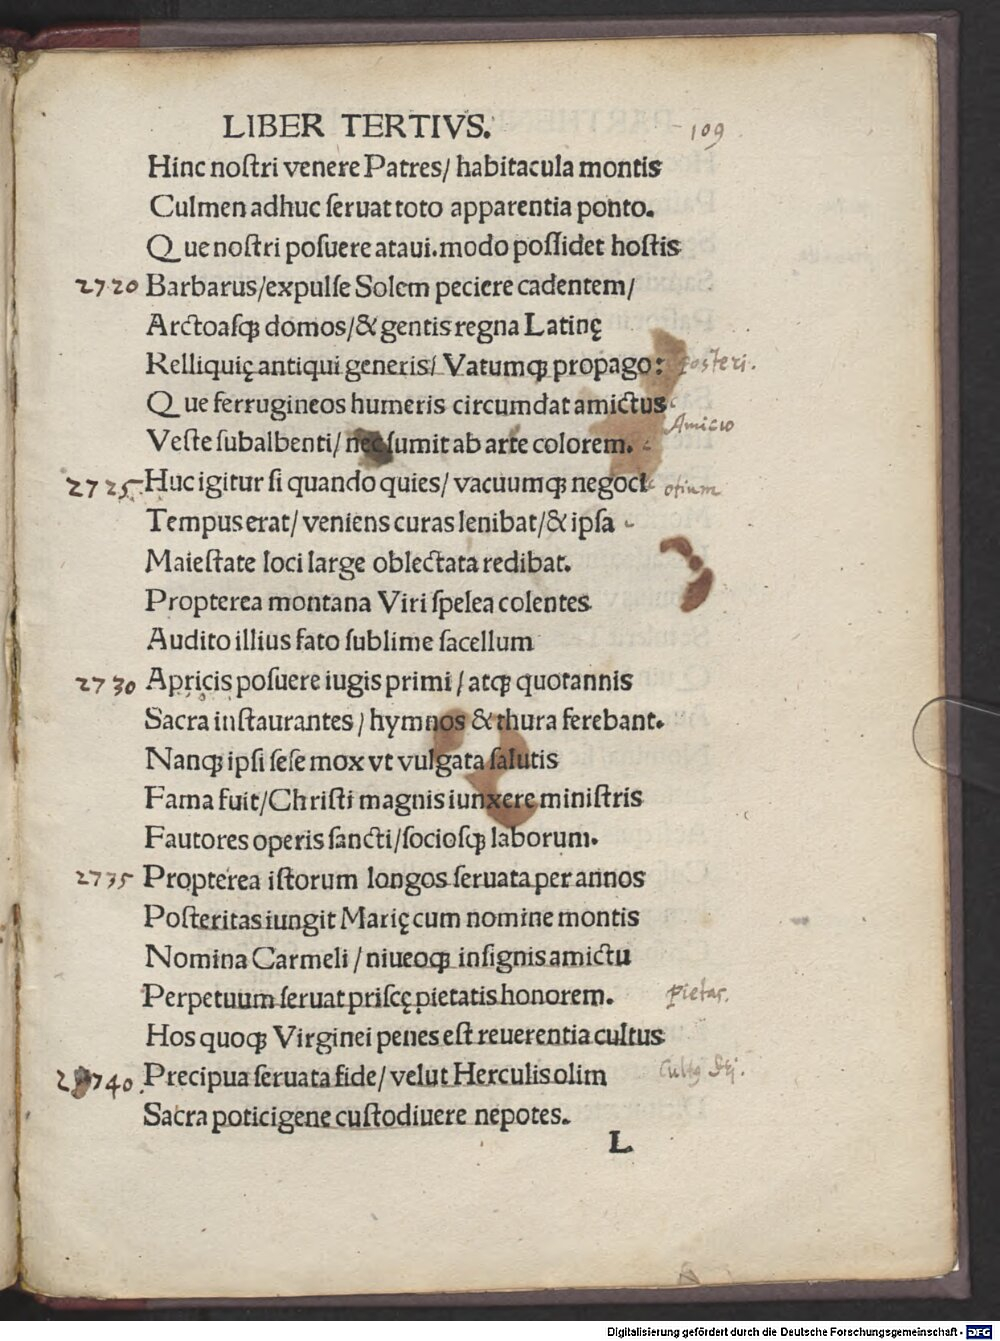 LIBER TERTIVS.
109
Hinc noſtri venere Patres/ habitacula montis
Culmen adhuc ſeruat toto apparentia ponto.
Que noſtri poſuere ataui. modo poſſidet hoſtis
2720 Barbarus/ expulſe Solem peciere cadentem/
Arctoaſqꝫ domos/ & gentis regna Latinę
Relliquię antiqui generis/ Vatumqꝫ propago: posteri.
Que ferrugineos humeris circumdat amictus
Amicio
Veſte ſubalbenti/ nec ſumit ab arte colorem.
2725 Huc igitur ſi quando quies/ vacuumqꝫ negoci otium
Tempus erat/ veniens curas lenibat/ & ipſa
Maieſtate loci large oblectata redibat.
Propterea montana Viri ſpelea colentes
Audito illius fato ſublime ſacellum
2730 Apricis poſuere iugis primi/ atqꝫ quotannis
Sacra inſtaurantes/ hymnos & thura ferebant.
Nanqꝫ ipſi ſeſe mox vt vulgata ſalutis
Fama fuit/ Chriſti magnis iunxere miniſtris
Fautores operis ſancti/ ſocioſqꝫ laborum.
2735 Propterea iſtorum longos ſeruata per annos
Poſteritas iungit Marię cum nomine montis
Nomina Carmeli/ niueoqꝫ inſignis amictu
Perpetuum ſeruat priſcę pietatis honorem. pietas.
Hos quoqꝫ Virginei penes eſt reuerentia cultus
2740 Precipua ſeruata fide/ velut Herculis olim
Sacra poticigene cuſtodiuere nepotes.
L
Digitalisierung gefördert durch die Deutsche Forschungsgemeinschaft - DFG